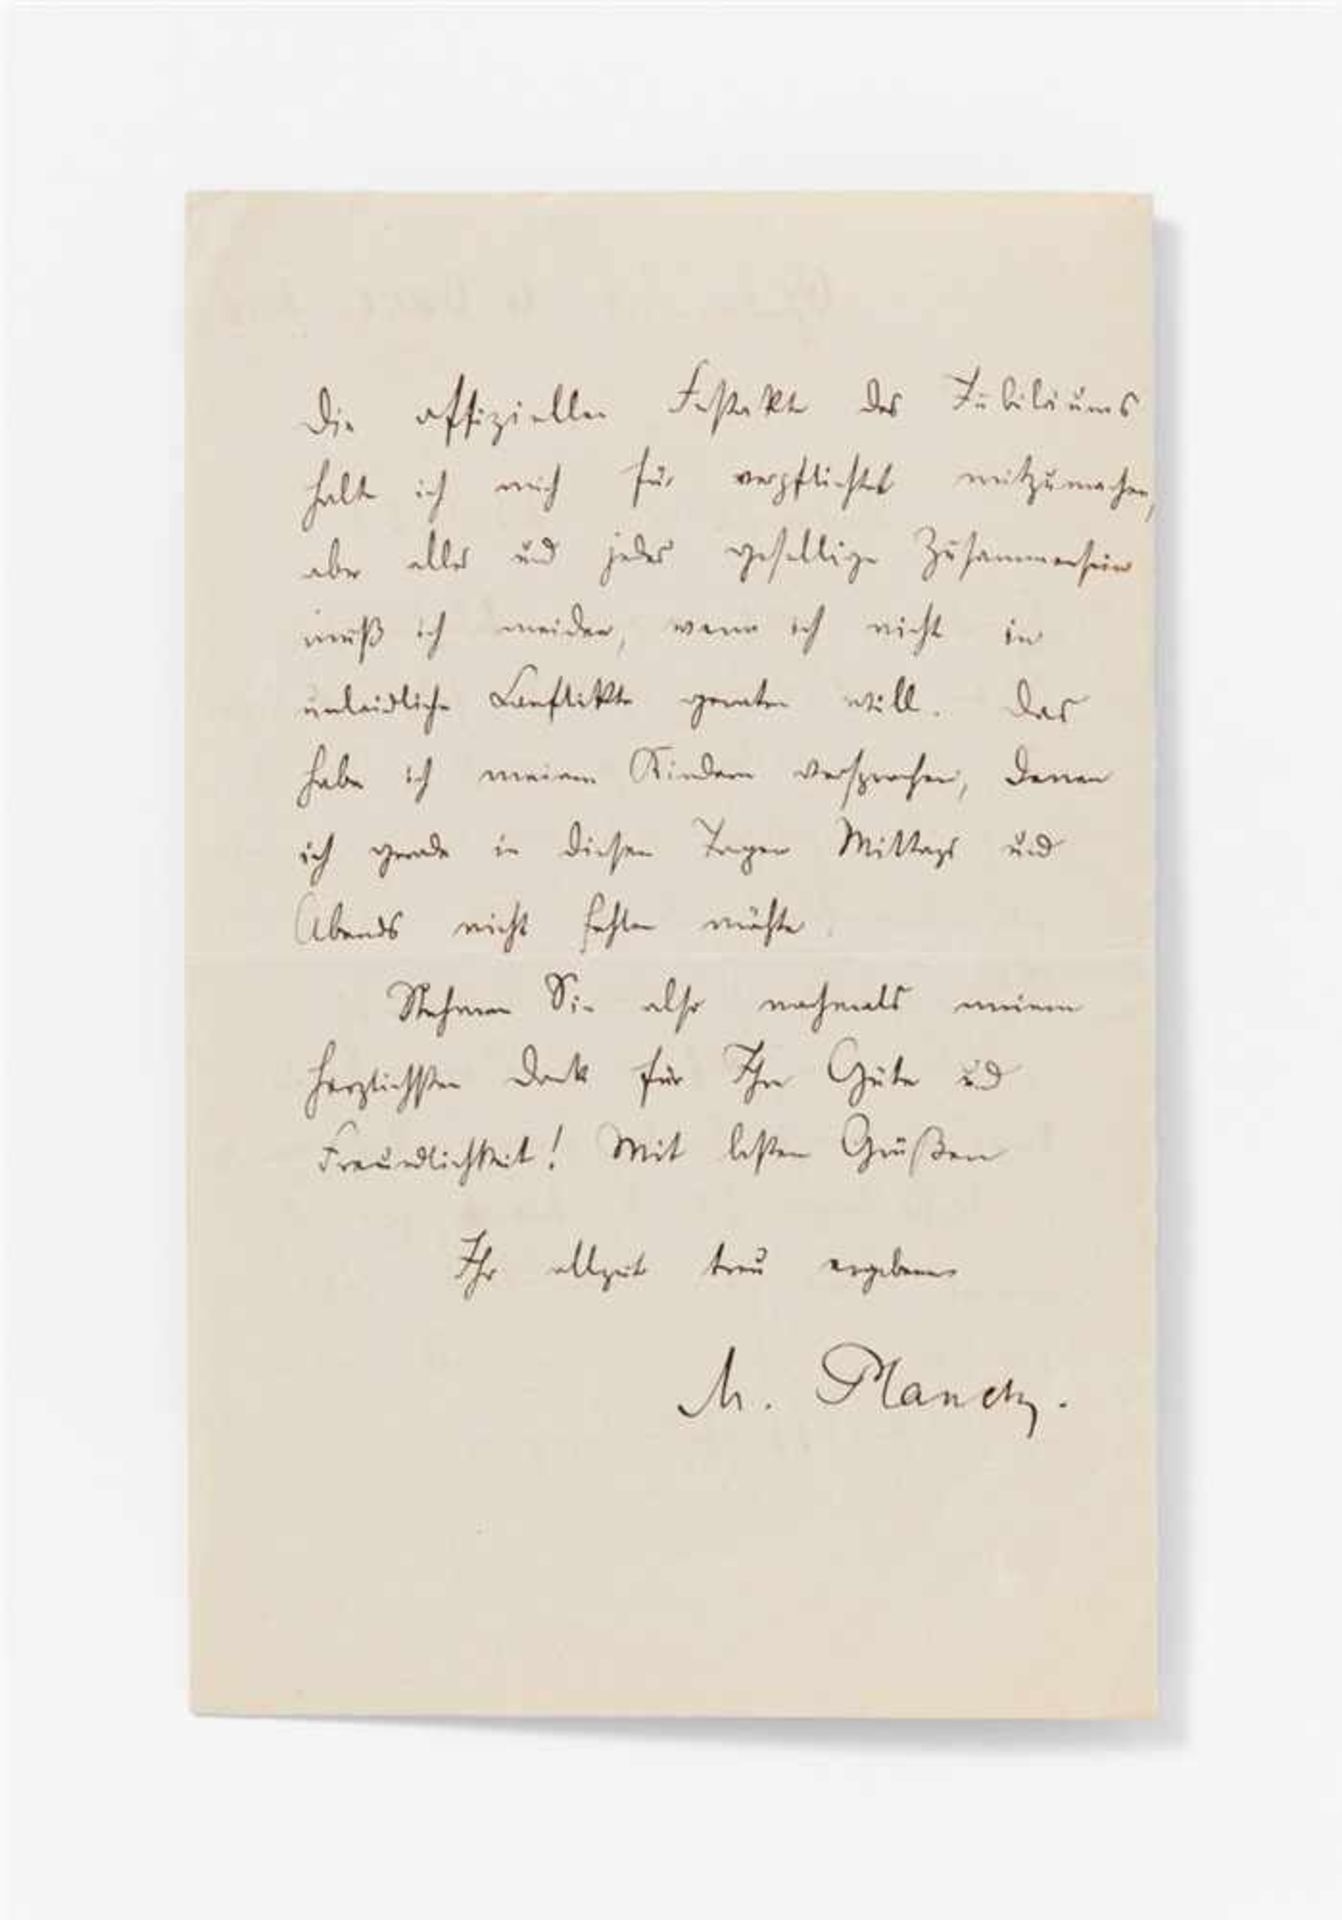 Die offiziellen Festakte des Jubiläums
halte ich mich für verpflichtet mitzumachen,
aber alles und jedes gesellige Zusammensein
muß ich meiden, wenn ich nicht in
unleidliche Konflikte geraten will. Das
habe ich meinen Kindern versprochen, denen
ich gerade in diesen Tagen Mittags und
Abends nicht fehlen möchte.
Nehmen Sie also nochmals meinen
herzlichsten Dank für Ihre Güte und
Freundlichkeit! Mit besten Grüßen
Ihr allzeit treu ergebener
M. Planck.